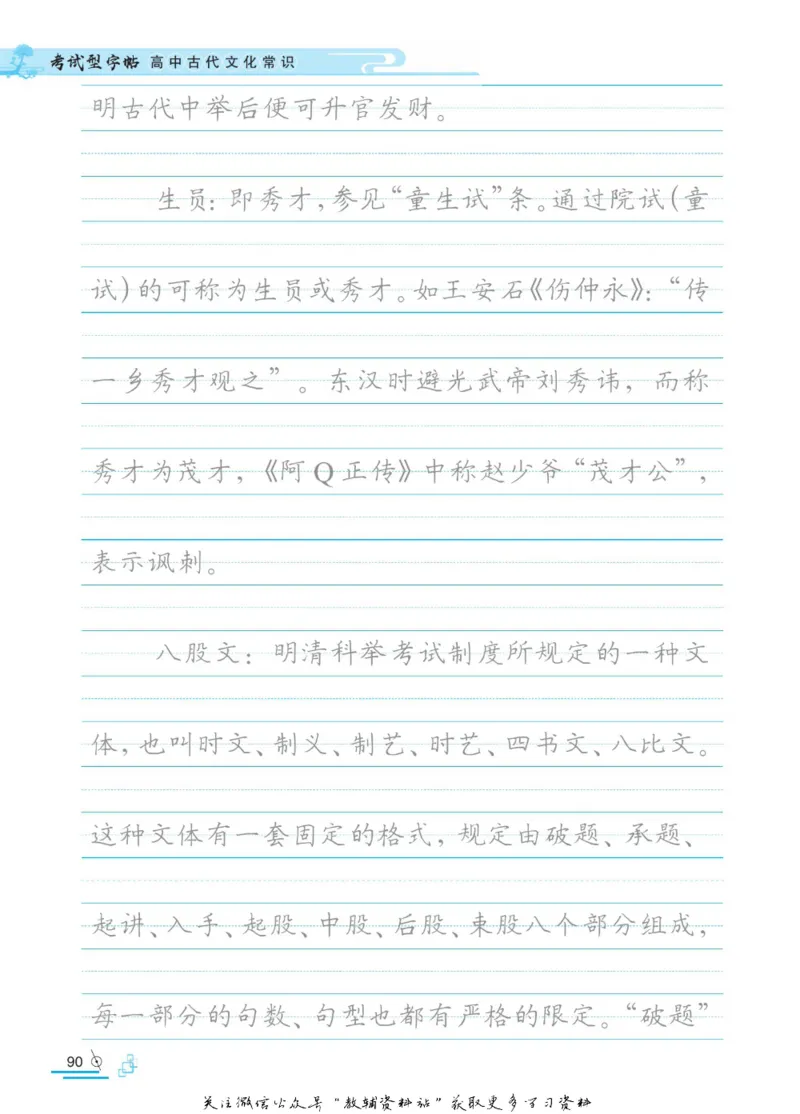 考试型字帖 高中古代文化常识
明古代中举后便可升官发财。
生员：即秀才，参见“童生试”条。通过院试（童
试）的可称为生员或秀才。如王安石《伤仲永》：“传
一乡秀才观之”。东汉时避光武帝刘秀讳，而称
秀才为茂才，《阿Q正传》中称赵少爷“茂才公”，
表示讽刺。
八股文：明清科举考试制度所规定的一种文
体，也叫时文、制义、制艺、时艺、四书文、八比文。
这种文体有一套固定的格式，规定由破题、承题、
起讲、入手、起股、中股、后股、束股八个部分组成，
每一部分的句数、句型也都有严格的限定。“破题”
90
关注微信公众号“教辅资料站”获取更多学习资料